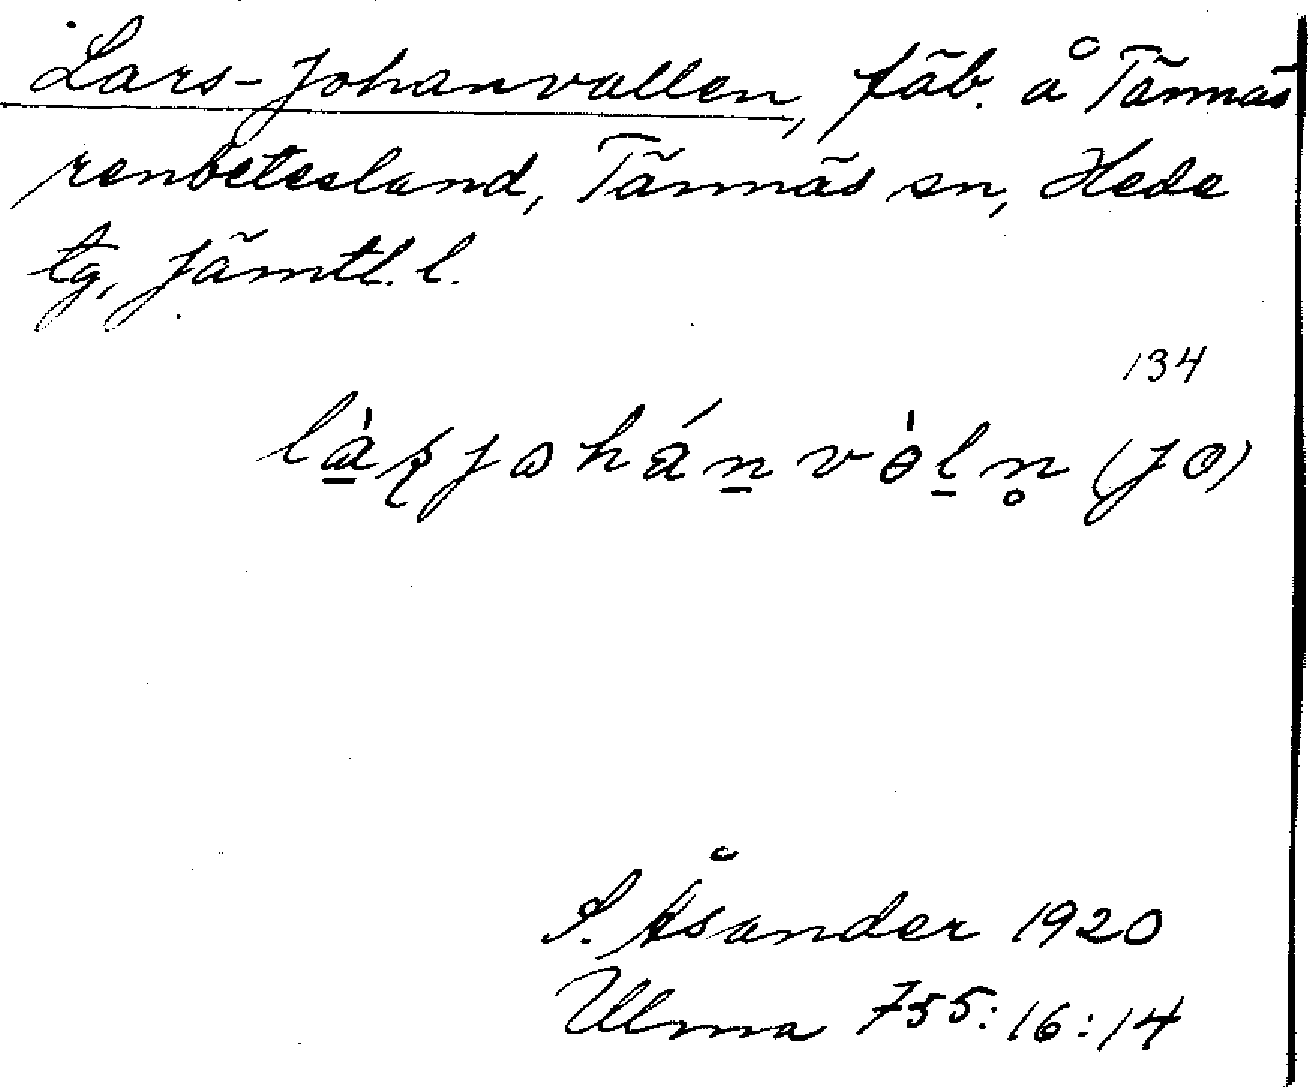 Lars-Johanvallen, fäb. å Tännäs
renbetesland, Tännäs sn, Hede
tg, Jämtl. l.
134
(JO)
S. Åsander 1920
Ulma 755:16:14